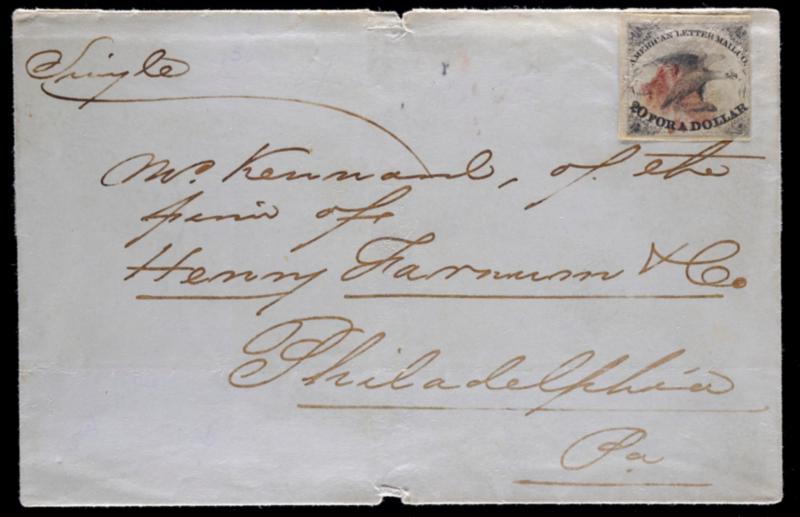 Single
AMERICAN LETTER MAIL CO.
20 FOR A DOLLAR
Mr. Kennard, of the
firm of
Henry Farnum & Co.
Philadelphia
Pa